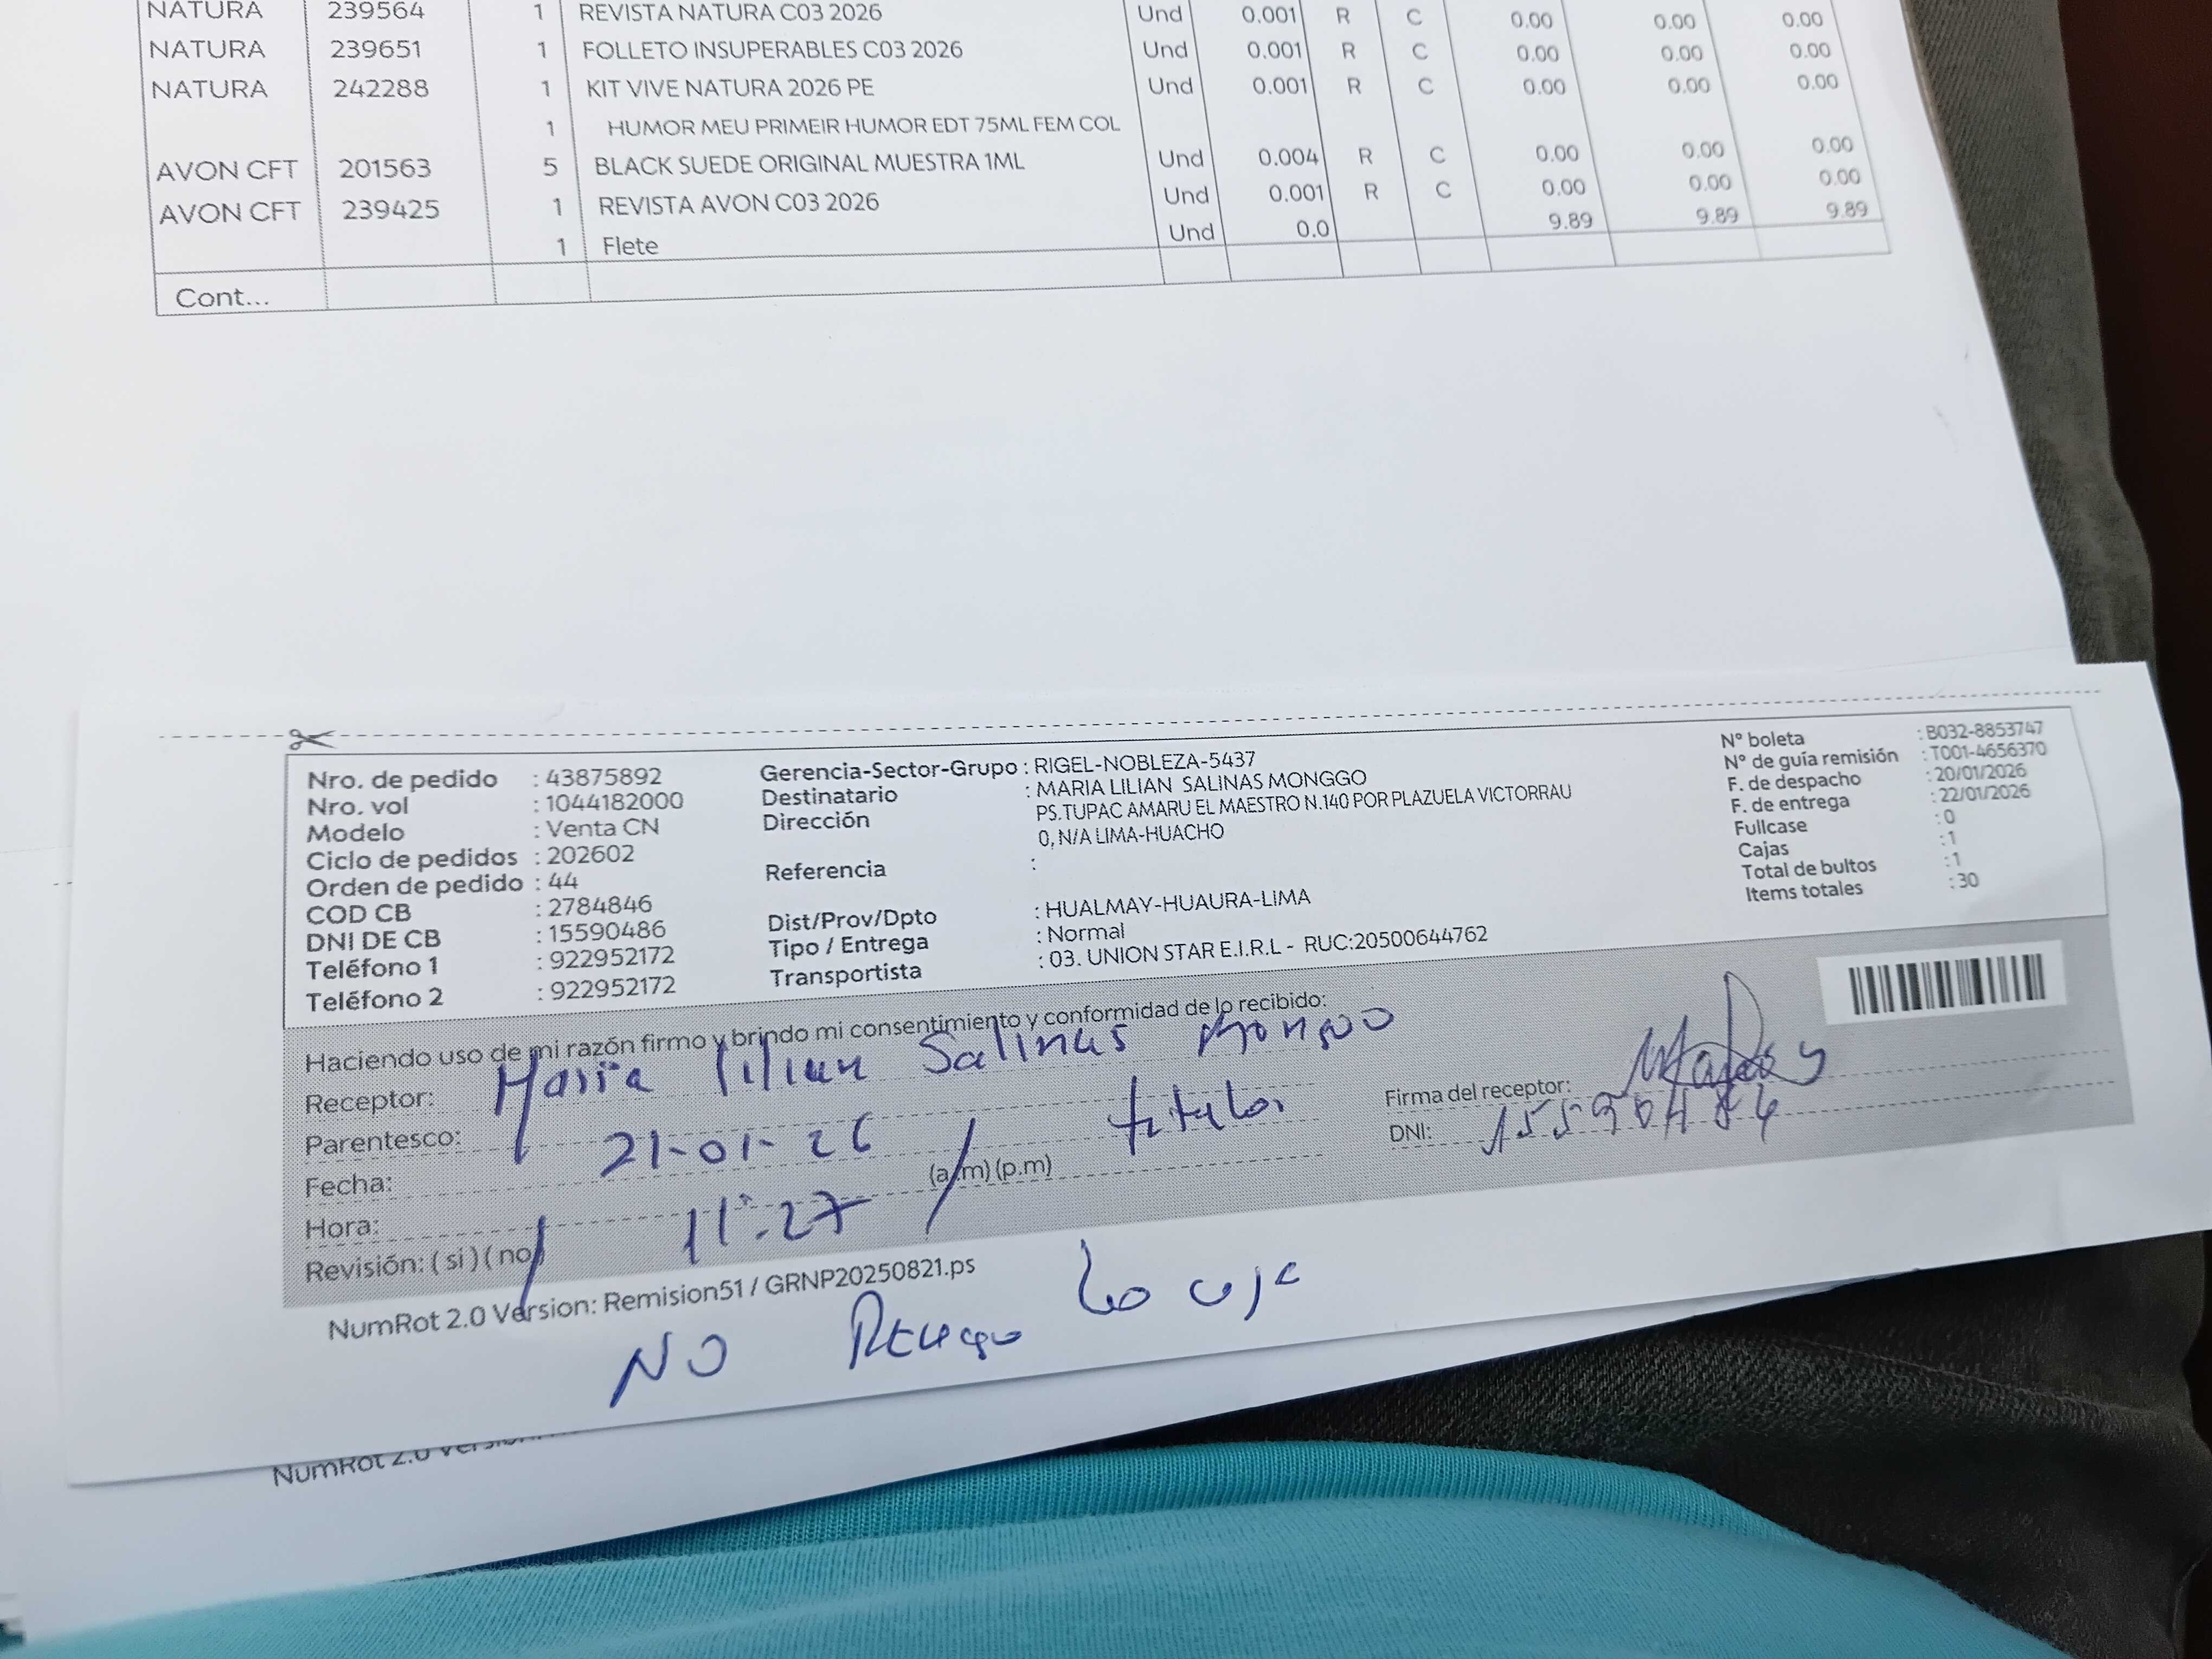 NATURA 239564 1 REVISTA NATURA C03 2026 Und 0.001 R C 0.00 0.00 0.00
NATURA 239651 1 FOLLETO INSUPERABLES C03 2026 Und 0.001 R C 0.00 0.00 0.00
NATURA 242288 1 KIT VIVE NATURA 2026 PE Und 0.001 R C 0.00 0.00 0.00
1 HUMOR MEU PRIMEIR HUMOR EDT 75ML FEM COL
AVON CFT 201563 5 BLACK SUEDE ORIGINAL MUESTRA 1ML Und 0.004 R C 0.00 0.00 0.00
AVON CFT 239425 1 REVISTA AVON C03 2026 Und 0.001 R C 0.00 0.00 0.00
1 Flete Und 0.0 9.89 9.89 9.89
Cont...
Nro. de pedido : 43875892
Nro. vol : 1044182000
Modelo : Venta CN
Ciclo de pedidos : 202602
Orden de pedido : 44
COD CB : 2784846
DNI DE CB : 15590486
Teléfono 1 : 922952172
Teléfono 2 : 922952172
Gerencia-Sector-Grupo : RIGEL-NOBLEZA-5437
Destinatario : MARIA LILIAN SALINAS MONGGO
Dirección PS.TUPAC AMARU EL MAESTRO N.140 POR PLAZUELA VICTORRAU
0, N/A LIMA-HUACHO
Referencia :
Dist/Prov/Dpto : HUALMAY-HUAURA-LIMA
Tipo / Entrega : Normal
Transportista : 03. UNION STAR E.I.R.L - RUC:20500644762
N° boleta : B032-8853747
N° de guía remisión : T001-4656370
F. de despacho : 20/01/2026
F. de entrega : 22/01/2026
Fullcase : 0
Cajas : 1
Total de bultos : 1
Items totales : 30
Haciendo uso de mi razón firmo y brindo mi consentimiento y conformidad de lo recibido:
Receptor: Maria lilian Salinas Monggo
Parentesco: titular
Fecha: 21-01-26
Hora: 11:27 (a.m) (p.m)
Revisión: ( si ) ( no )
Firma del receptor:
DNI: 15590484
NumRot 2.0 Version: Remision51 / GRNP20250821.ps
NO
NumRot 2.0